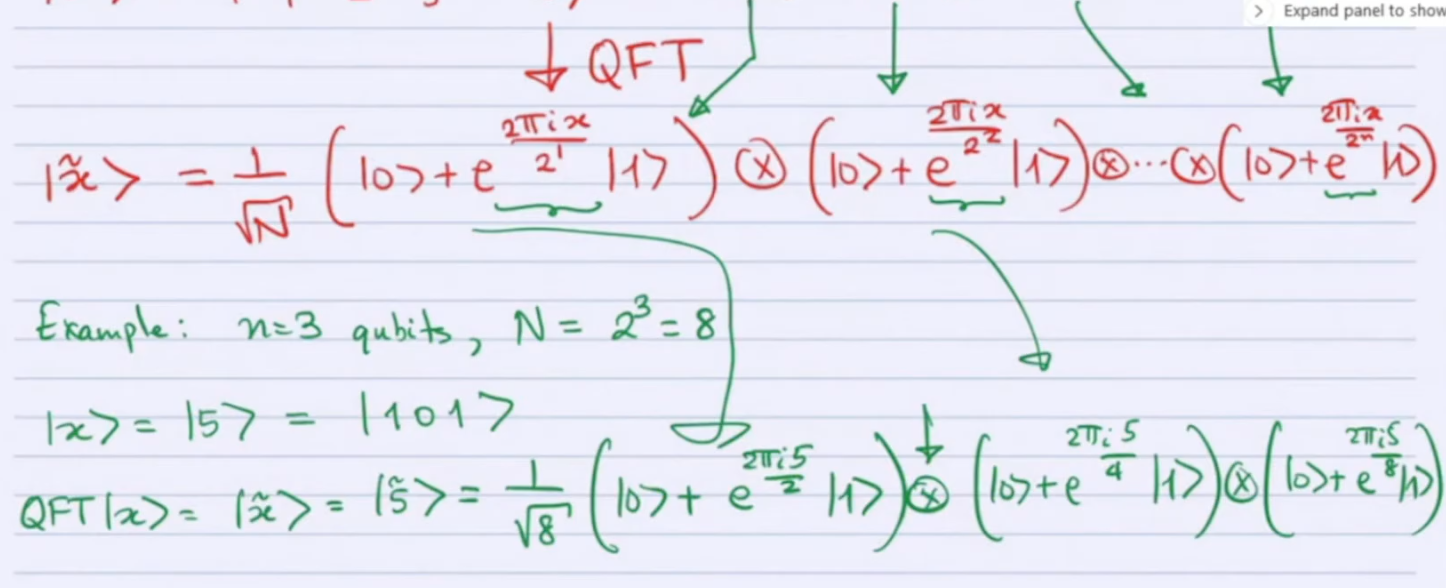 Expand panel to show
QFT
|x̃> = 1/√N (|0> + e^{2πix/2^1} |1>) ⊗ (|0> + e^{2πix/2^2} |1>) ⊗ ... ⊗ (|0> + e^{2πix/2^n} |1>)
Example: n=3 qubits, N = 2^3 = 8
|x> = |5> = |101>
QFT|x> = |x̃> = |5̃> = 1/√8 (|0> + e^{2πi5/2} |1>) ⊗ (|0> + e^{2πi5/4} |1>) ⊗ (|0> + e^{2πi5/8} |1>)